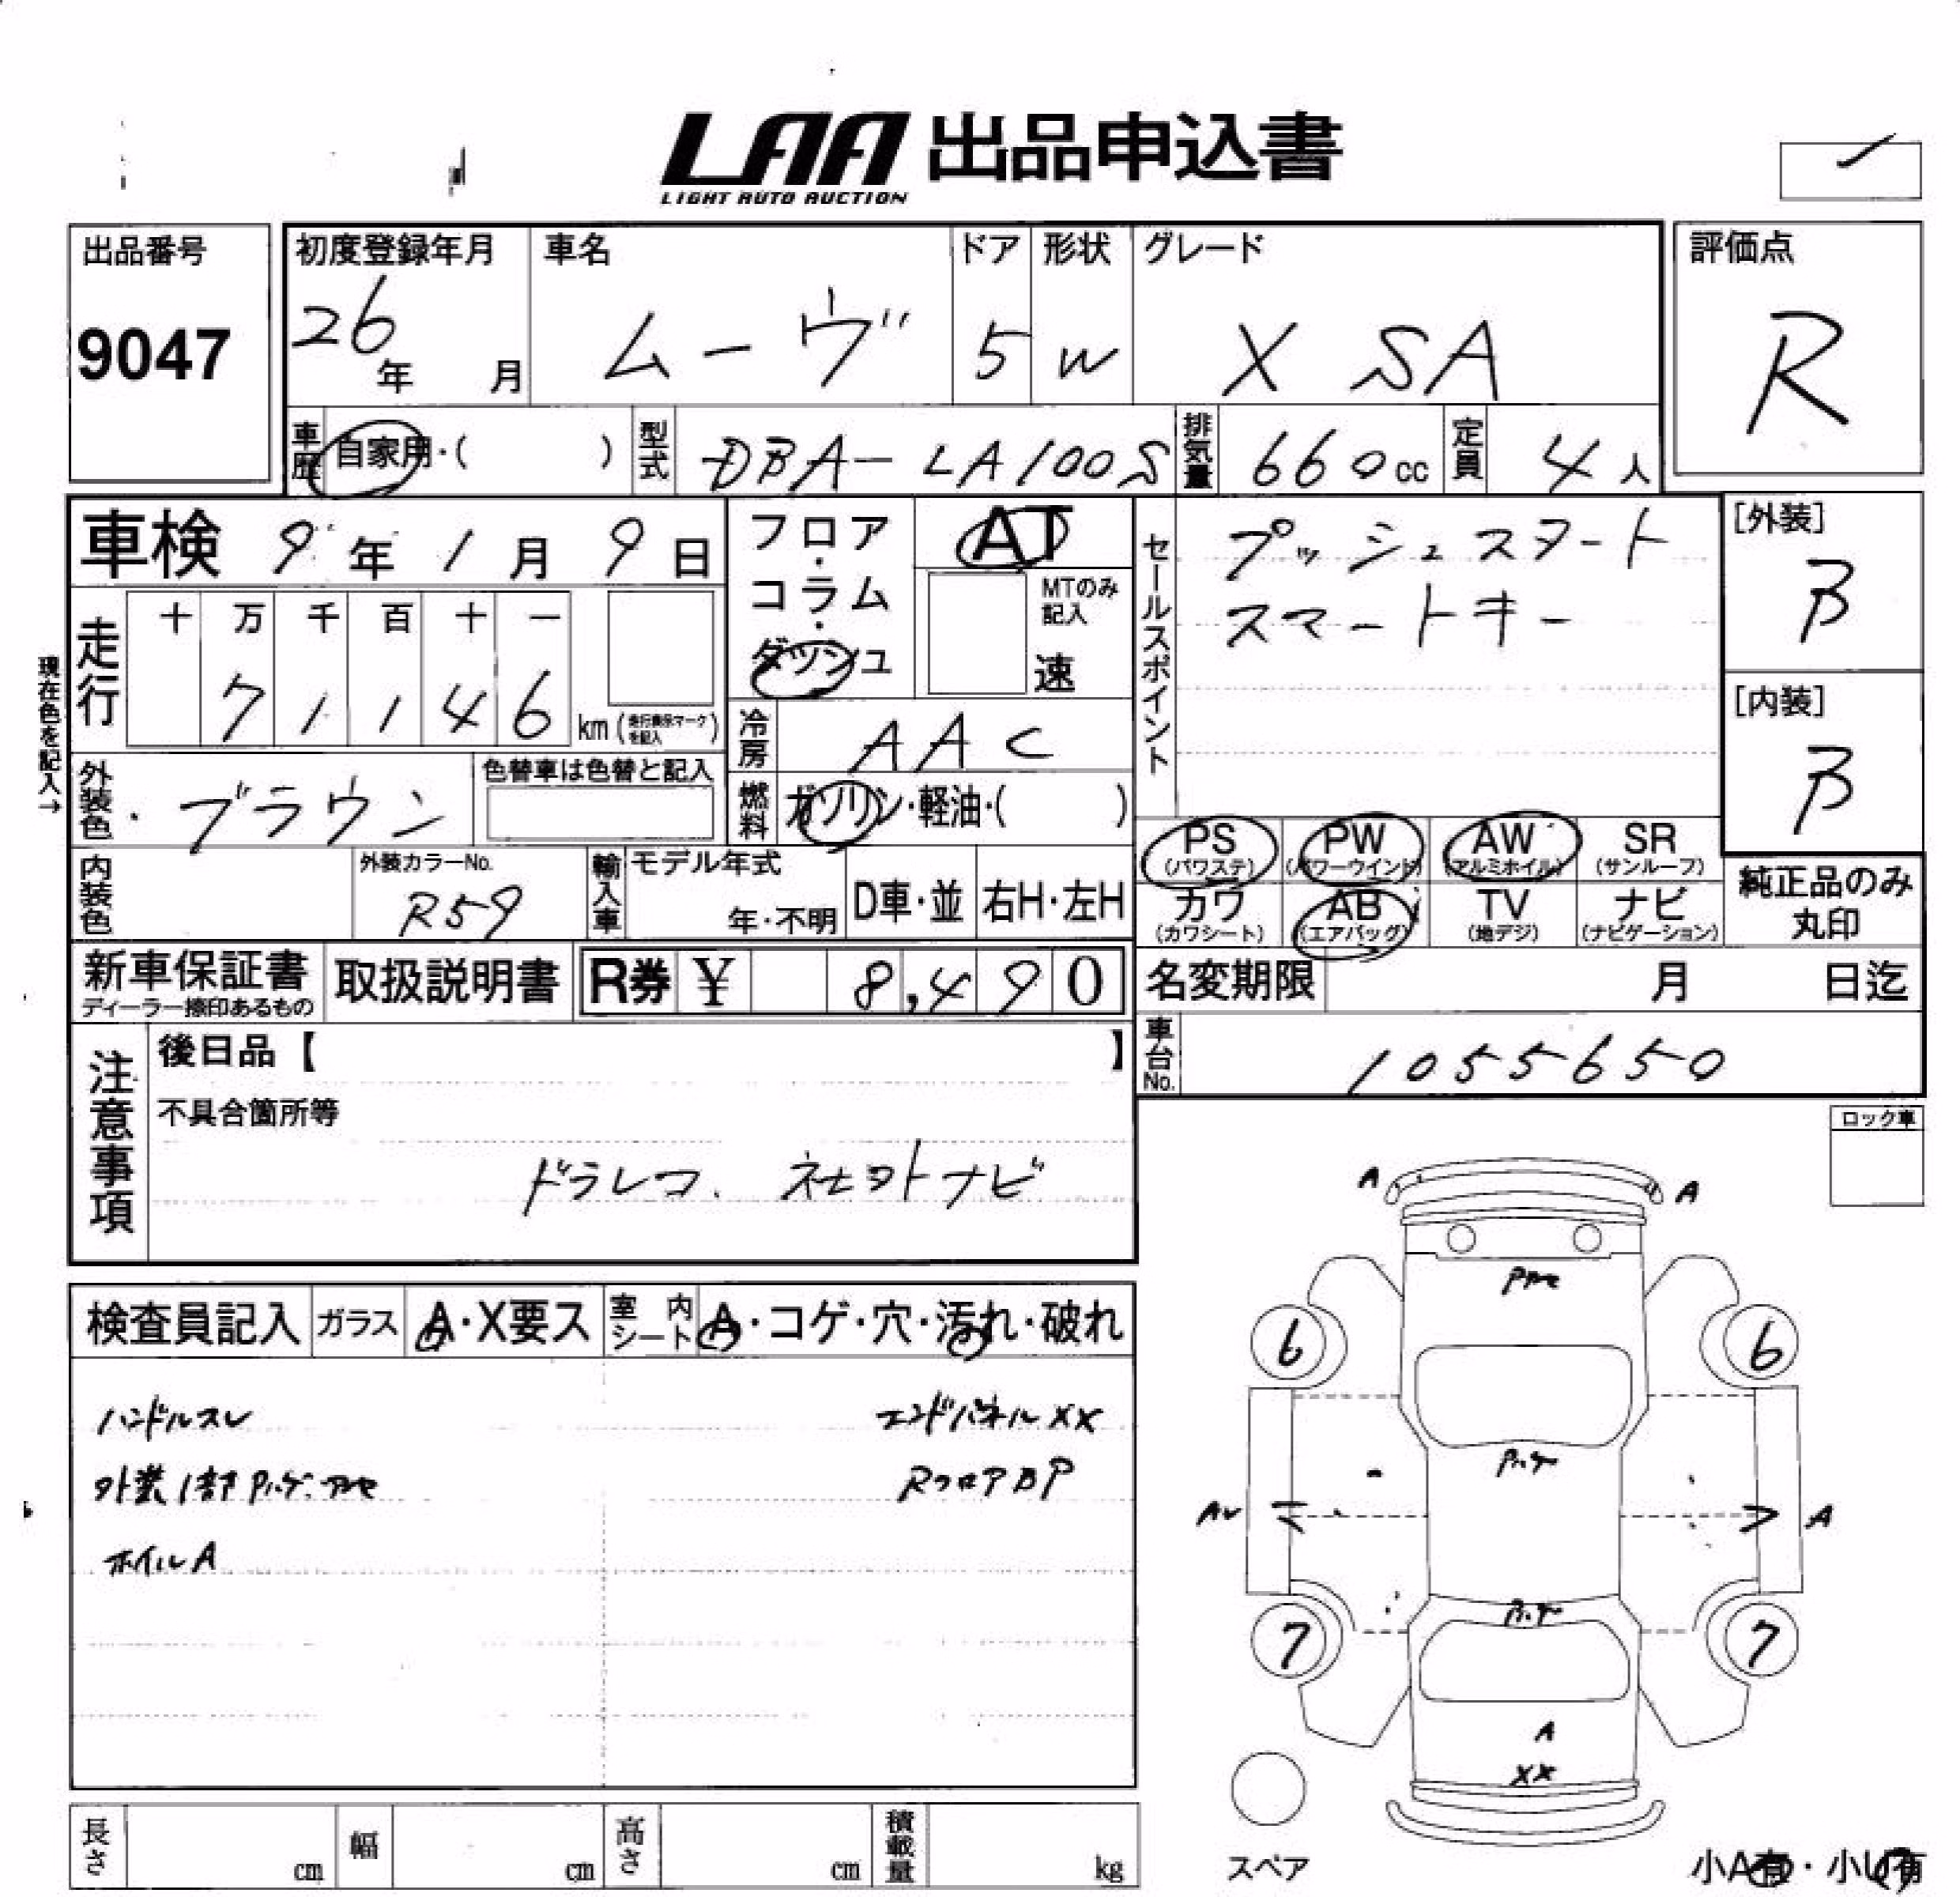 LAA 出品申込書
LIGHT AUTO AUCTION
出品番号
9047
初度登録年月
26年 月
車名
ムーヴ
ドア
5
形状
W
グレード
X SA
評価点
R
車歴
自家用・( )
型式
DBA-LA100S
排気量
660cc
定員
4人
車検 9年1月9日
走行
十 万 千 百 十 一
7 1 1 4 6
km(走行表示マークを記入)
現在色を記入→
フロア・コラム・ダッシュ
AT
MTのみ記入
速
冷房
AAC
燃料
ガソリン・軽油・( )
セールスポイント
プッシュスタート
スマートキー
[外装]
B
[内装]
B
外装色
ブラウン
色替車は色替と記入
内装色
外装カラーNo.
R59
輸入車
モデル年式
年・不明
D車・並
右H・左H
PS (パワステ)
PW (パワーウインド)
AW (アルミホイル)
SR (サンルーフ)
カワ (カワシート)
AB (エアバッグ)
TV (地デジ)
ナビ (ナビゲーション)
純正品のみ
丸印
新車保証書
ディーラー捺印あるもの
取扱説明書
R券 ¥ 8,490
名変期限 月 日迄
車台No.
1055650
注意事項
後日品【 】
不具合箇所等
ドラレコ. 社外ナビ
ロック車
検査員記入
ガラス
A・X要ス
室内シート
A・コゲ・穴・汚れ・破れ
ハンドルスレ
エンドパネルXX
RフロアBP
ホイルA
A
A
6
6
A
7
7
A
XX
スペア
小A有・小U有
長さ cm
幅 cm
高さ cm
積載量 kg